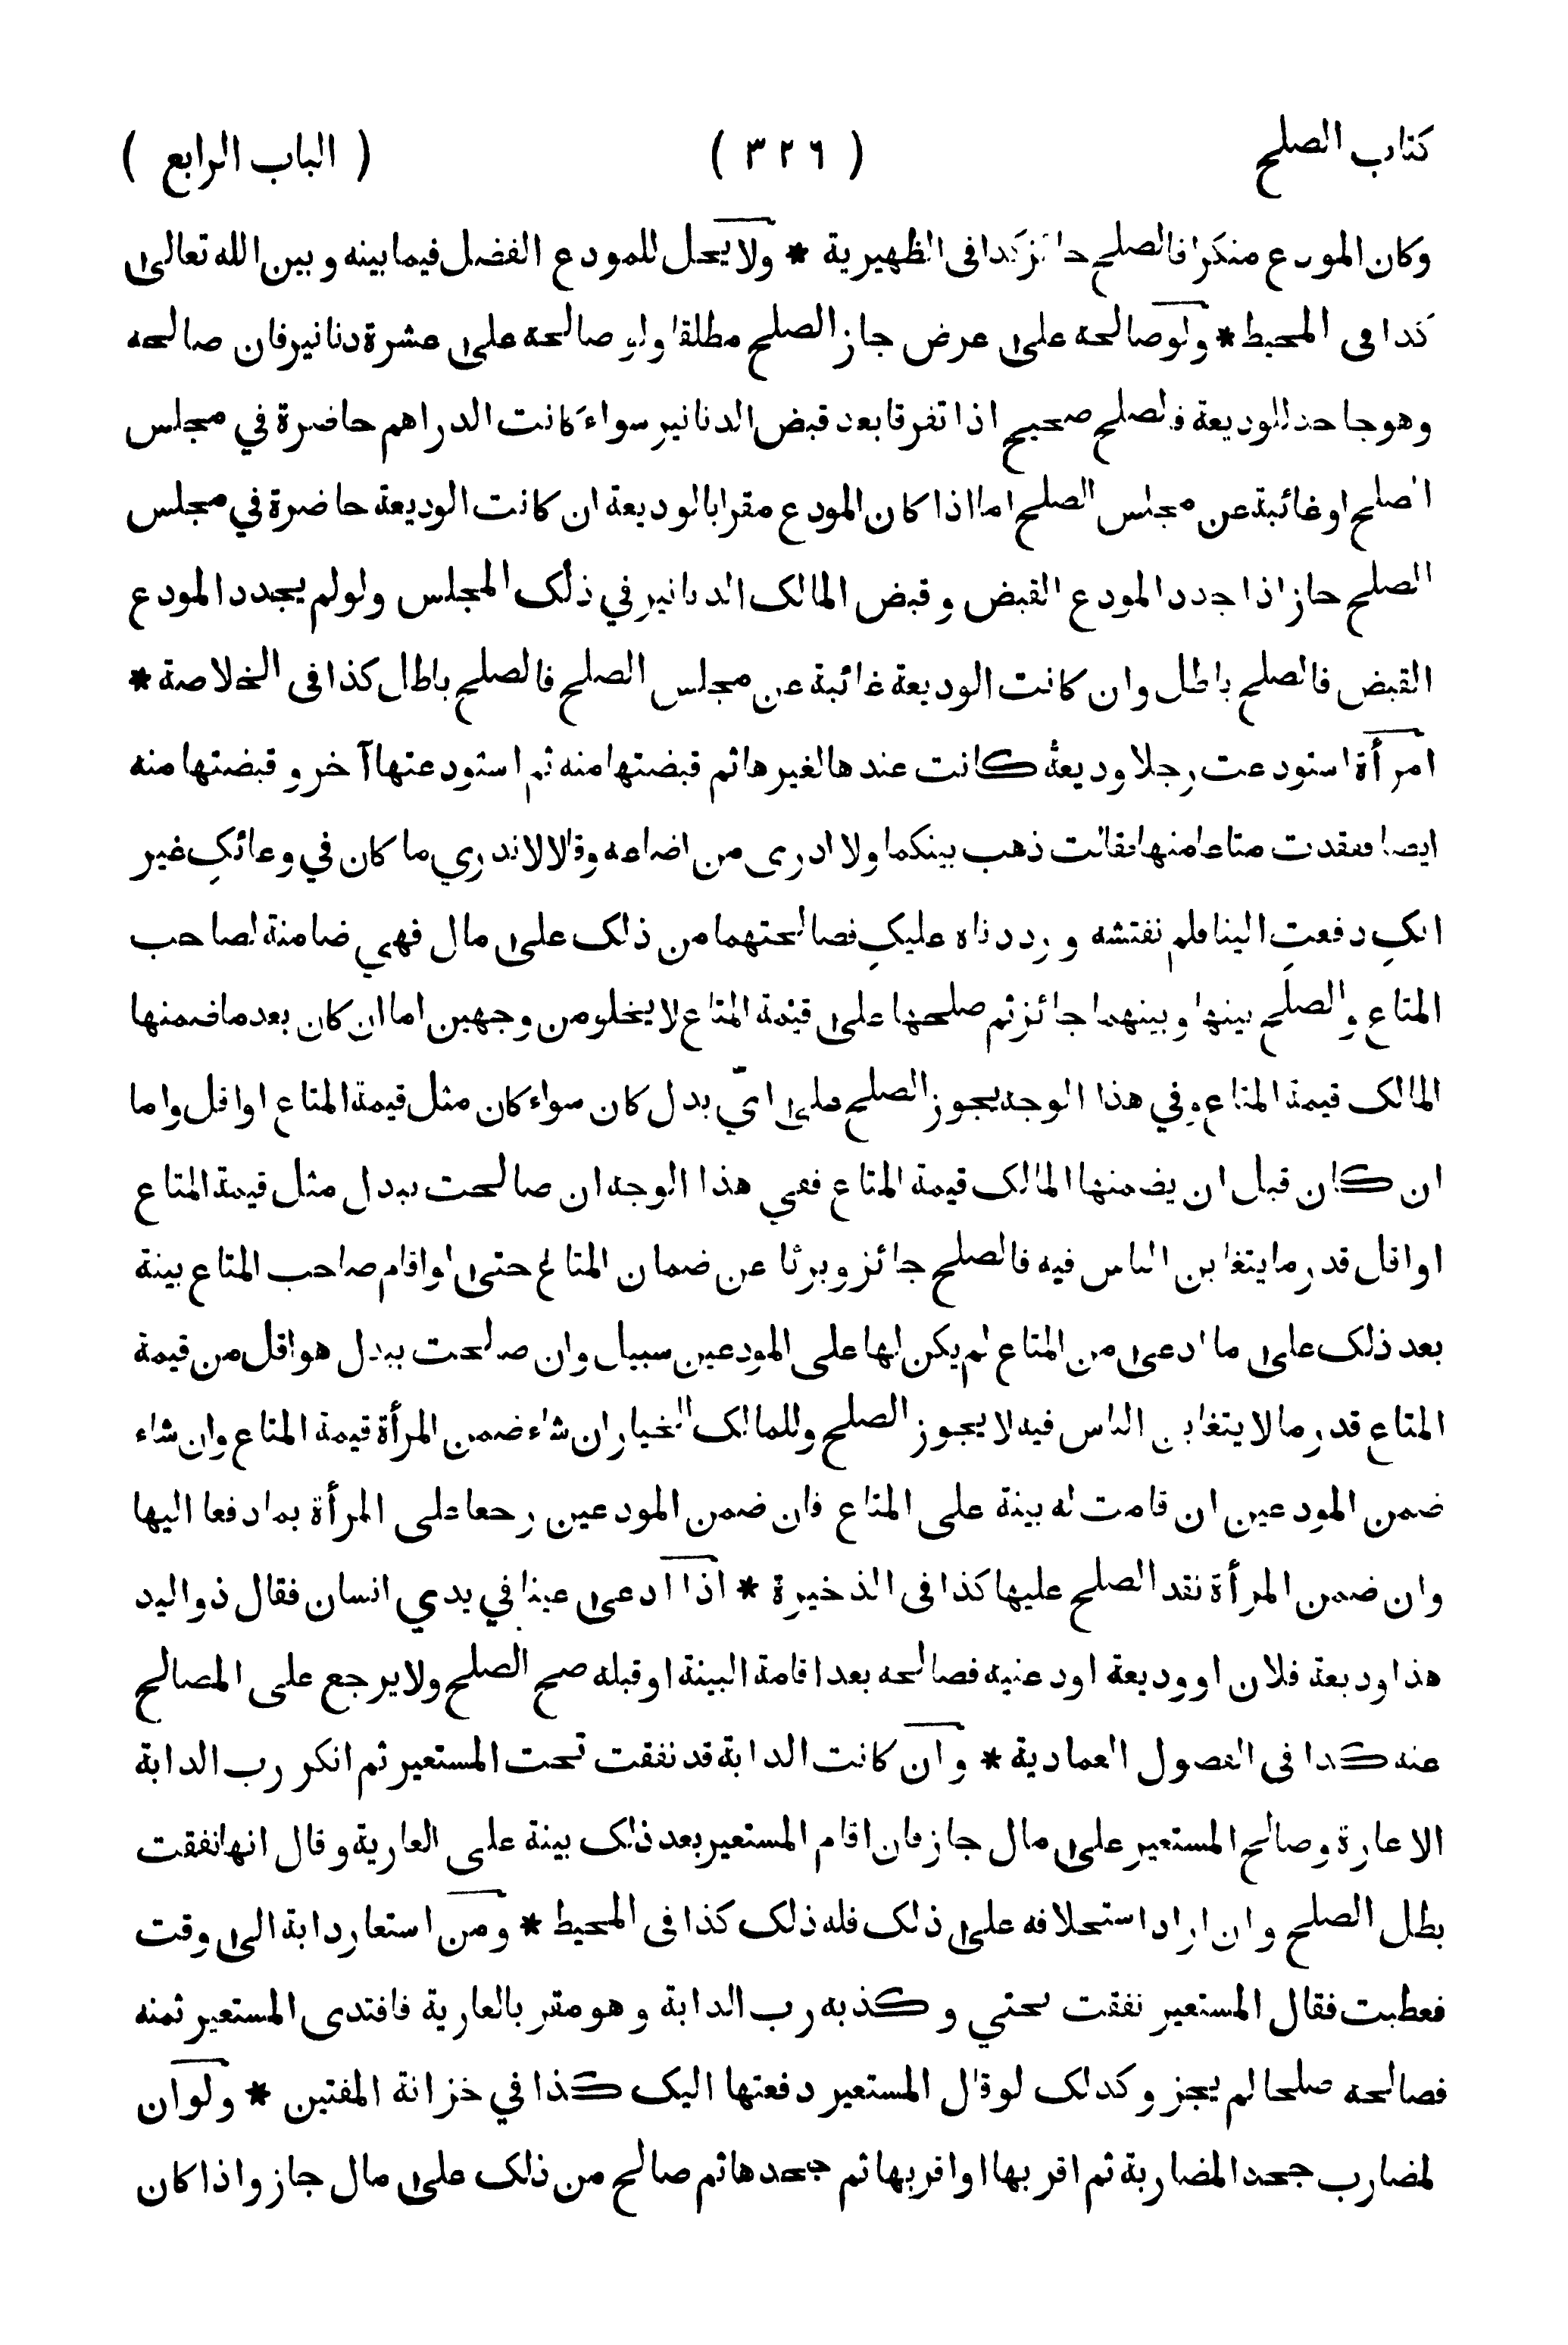 كتاب الصلح ( ٣٢٦ ) ( الباب الرابع )
وكان المودع منكرا فالصلح جائز كذا فى الظهيرية * ولا يحل للمودع الفضل فيما بينه و بين الله تعالى
كذا فى المحيط * ولو صالحه على عرض جاز الصلح مطلقا ولو صالحه على عشرة دنانير فان صالحه
وهو جاحد للوديعة فالصلح صحيح اذا تفرقا بعد قبض الدنانير سواء كانت الدراهم حاضرة في مجلس
الصلح او غائبة عن مجلس الصلح اما اذا كان المودع مقرا بالوديعة ان كانت الوديعة حاضرة في مجلس
الصلح جاز اذا جدد المودع القبض و قبض المالك الدنانير في ذلك المجلس ولو لم يجدد المودع
القبض فالصلح باطل وان كانت الوديعة غائبة عن مجلس الصلح فالصلح باطل كذا فى الخلاصة *
امرأة استودعت رجلا وديعة كانت عندها لغيرها ثم قبضتها منه ثم استودعتها آخر و قبضتها منه
ايضا ففقدت متاعا منها فقالت ذهب بينكما ولا ادرى من اضاعه وقالا لاندري ما كان في وعائكِ غير
انكِ دفعتِ الينا فلم نفتشه و رددناه عليكِ فصالحتهما من ذلك على مال فهي ضامنة لصاحب
المتاع والصلح بينها و بينهما جائز ثم صلحها على قيمة المتاع لا يخلو من وجهين اما ان كان بعد ما ضمنها
المالك قيمة المتاع وفي هذا الوجه يجوز الصلح على ايّ بدل كان سواء كان مثل قيمة المتاع او اقل واما
ان كان قبل ان يضمنها المالك قيمة المتاع ففي هذا الوجه ان صالحت ببدل مثل قيمة المتاع
او اقل قدر ما يتغابن الناس فيه فالصلح جائز و برئا عن ضمان المتاع حتى لو اقام صاحب المتاع بينة
بعد ذلك على ما ادعى من المتاع لم يكن لها على المودعين سبيل وان صالحت ببدل هو اقل من قيمة
المتاع قدر ما لا يتغابن الناس فيه لا يجوز الصلح وللمالك الخيار ان شاء ضمن المرأة قيمة المتاع وان شاء
ضمن المودعين ان قامت له بينة على المتاع فان ضمن المودعين رجعا على المرأة بما دفعا اليها
وان ضمن المرأة نفذ الصلح عليها كذا فى الذخيرة * اذا ادعى عينا في يدي انسان فقال ذو اليد
هذا وديعة فلان او وديعة اودعنيه فصالحه بعد اقامة البينة او قبله صح الصلح ولا يرجع على المصالح
عنه كذا فى الفصول العمادية * وان كانت الدابة قد نفقت تحت المستعير ثم انكر رب الدابة
الاعارة و صالح المستعير على مال جاز فان اقام المستعير بعد ذلك بينة على العارية وقال انها نفقت
بطل الصلح و ان اراد استحلافه على ذلك فله ذلك كذا فى المحيط * ومن استعار دابة الى وقت
فعطبت فقال المستعير نفقت تحتي و كذبه رب الدابة و هو مقر بالعارية فافتدى المستعير ثمنه
فصالحه صلحا لم يجز و كذلك لو قال المستعير دفعتها اليك كذا في خزانة المفتين * ولو ان
لمضارب جحد المضاربة ثم اقر بها او اقر بها ثم جحدها ثم صالح من ذلك على مال جاز واذا كان